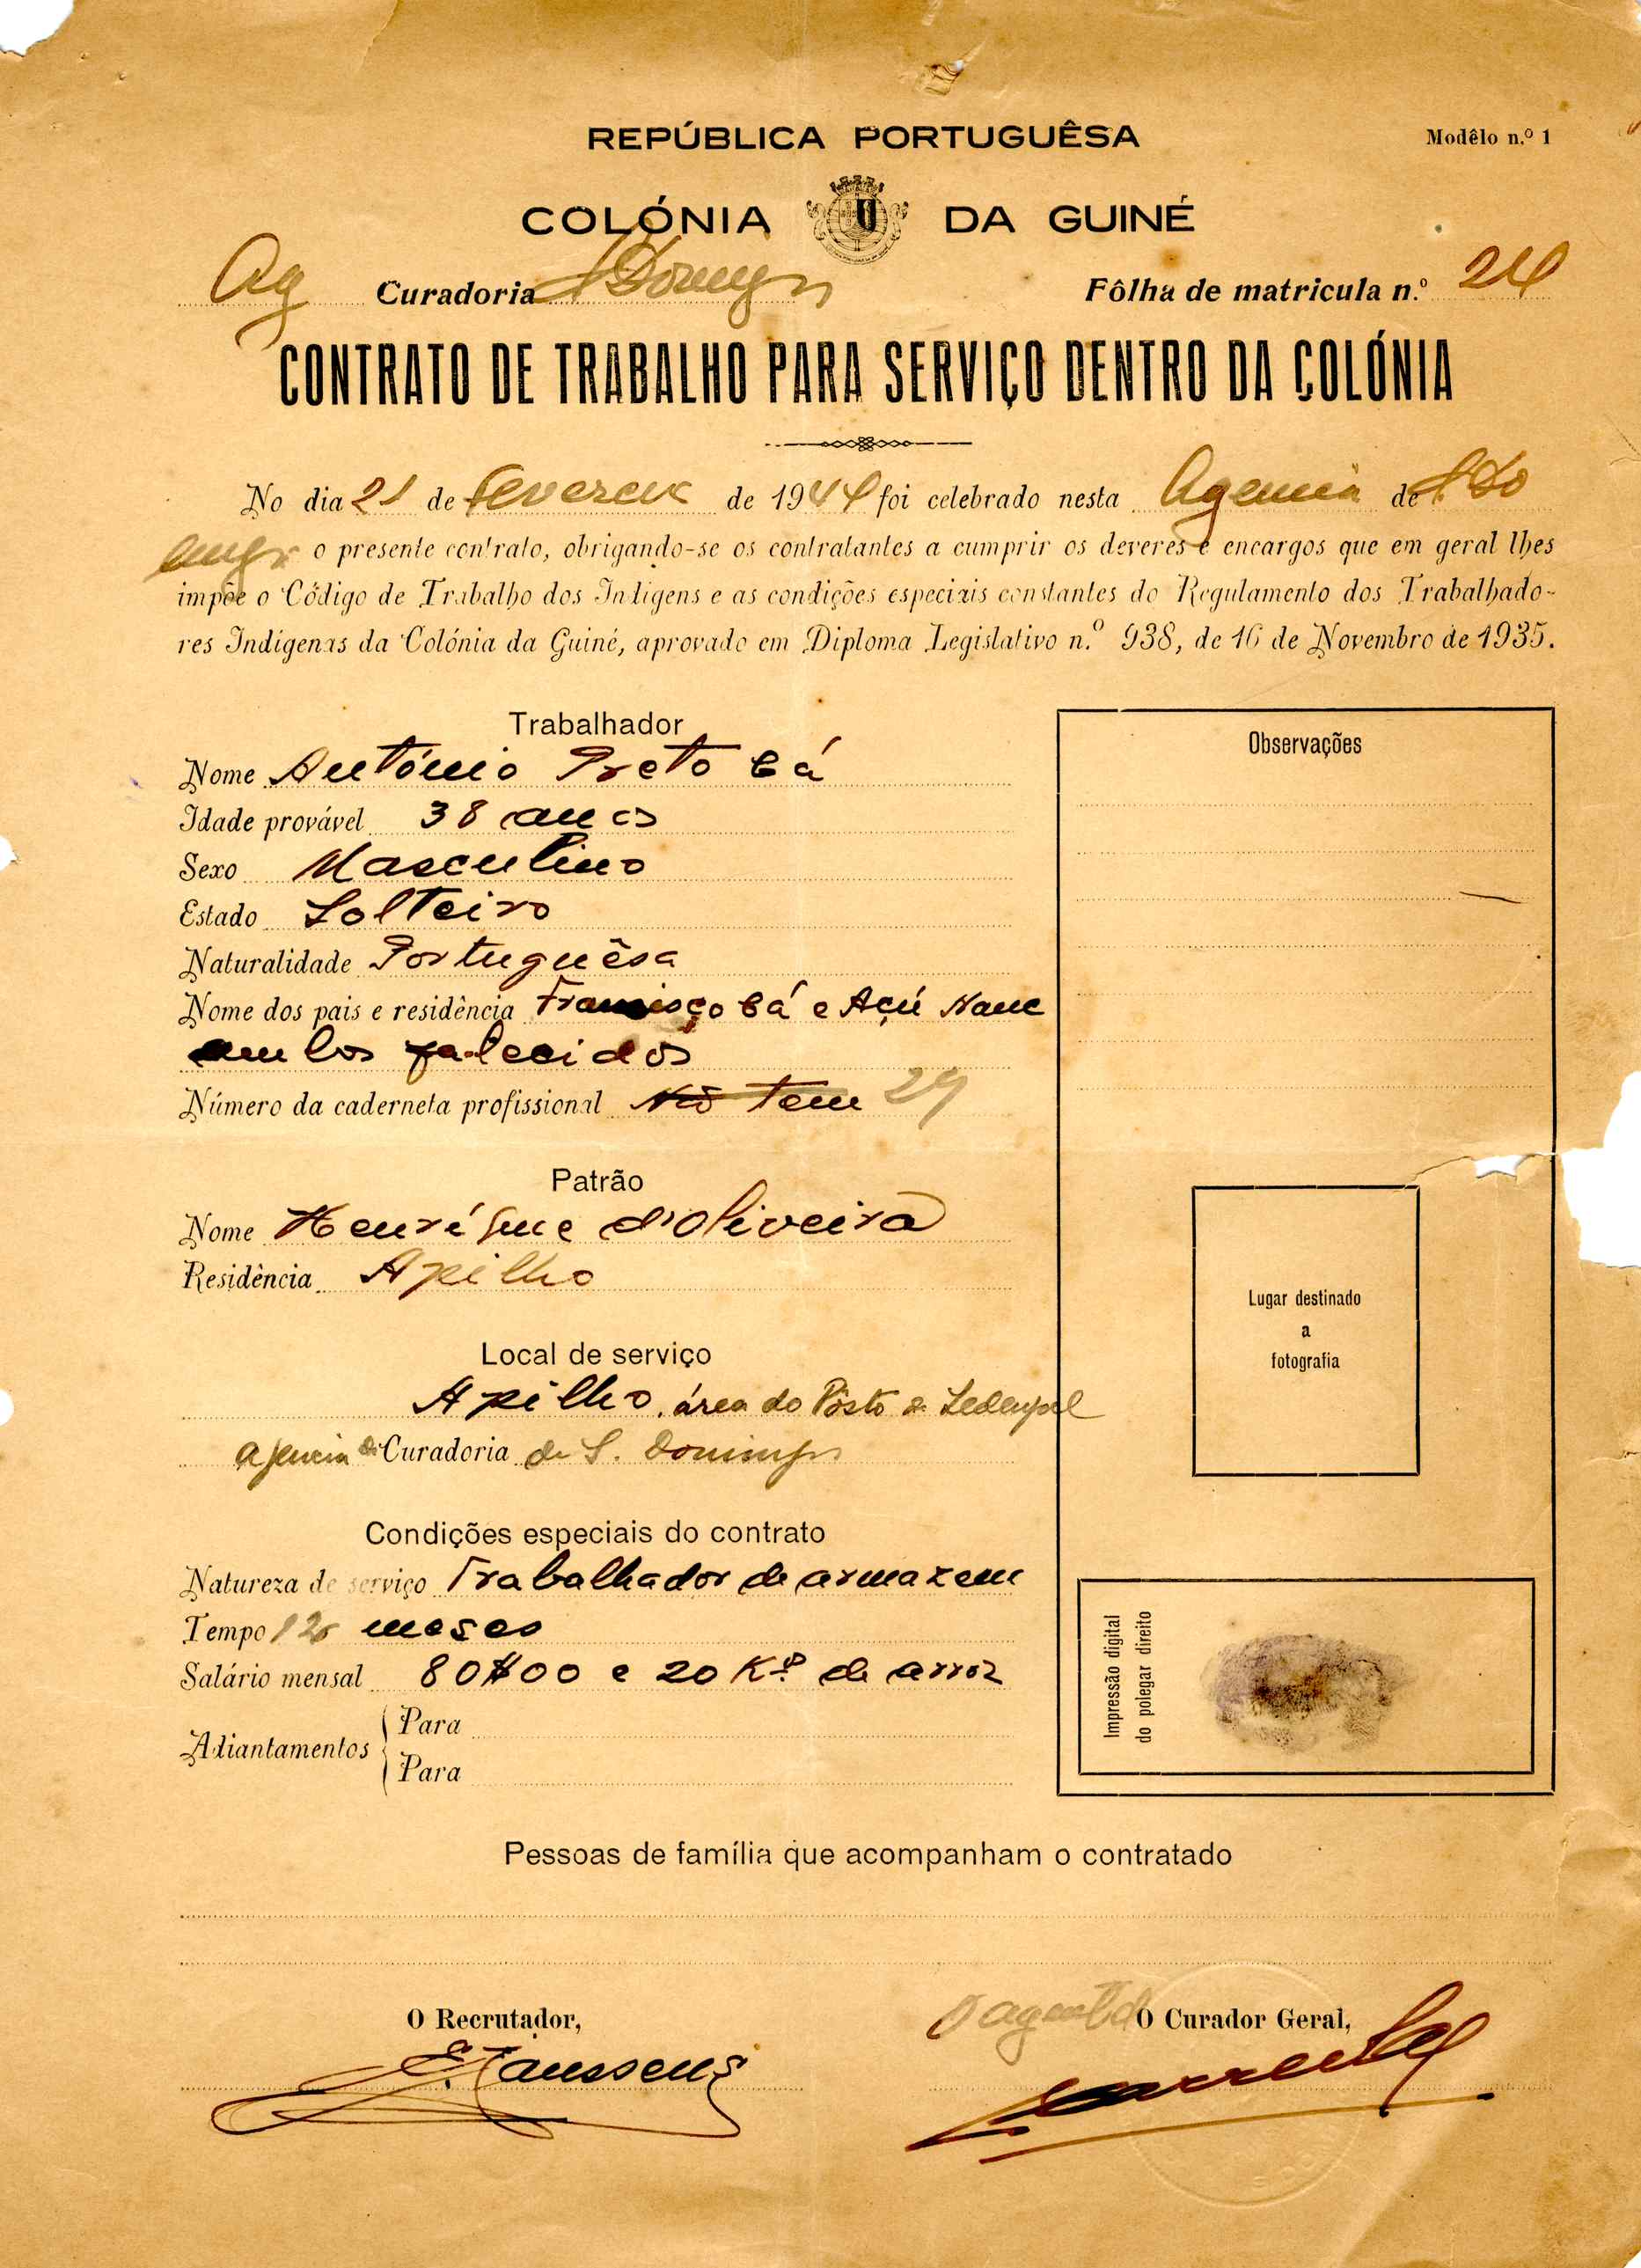 REPÚBLICA PORTUGUÊSA
Modêlo n.º 1
COLÓNIA DA GUINÉ
Ag Curadoria S Domgs
Fôlha de matricula n.º 24
CONTRATO DE TRABALHO PARA SERVIÇO DENTRO DA COLÓNIA
No dia 21 de Fevereiro de 1944 foi celebrado nesta Agencia de S Do
mingos o presente contrato, obrigando-se os contratantes a cumprir os deveres e encargos que em geral lhes
impõe o Código de Trabalho dos Indígens e as condições especiais constantes do Regulamento dos Trabalhado-
res Indígenas da Colónia da Guiné, aprovado em Diploma Legislativo n.º 938, de 16 de Novembro de 1935.
Trabalhador
Nome António Preto Cá
Idade provável 38 anos
Sexo Masculino
Estado Solteiro
Naturalidade Portuguêsa
Nome dos pais e residência Francisco Cá e Açú Nanc
ambos falecidos
Número da caderneta profissional Nõ tem 29
Patrão
Nome Henríque d'Oliveira
Residência Apilho
Local de serviço
Apilho, área do Pôsto de Sedengal
agencia da Curadoria de S. Domingos
Condições especiais do contrato
Natureza de serviço Trabalhador de armazem
Tempo 12 meses
Salário mensal 80$00 e 20 Kº de arroz
Adiantamentos
Para
Para
Observações
Lugar destinado
a
fotografia
Impressão digital
do polegar direito
Pessoas de família que acompanham o contratado
O Recrutador,
E. Janssens
O agente do O Curador Geral,